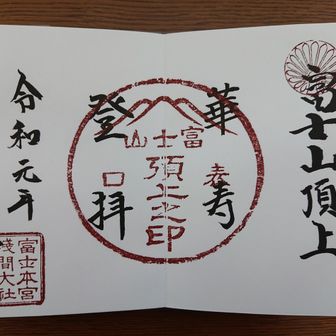 冨士山頂上
華寿
登拝
富士山
頂上之印
表口
令和元年
富士本宮
淺間大社